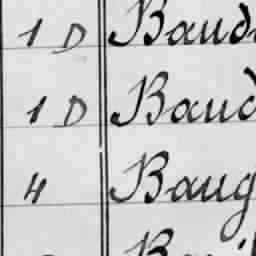 1 D Baud
1 D Baud
4 Baug